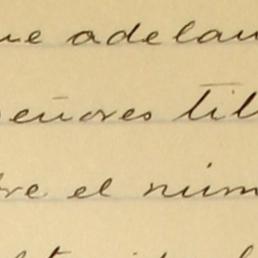 ue adelan
señores til
re el núm